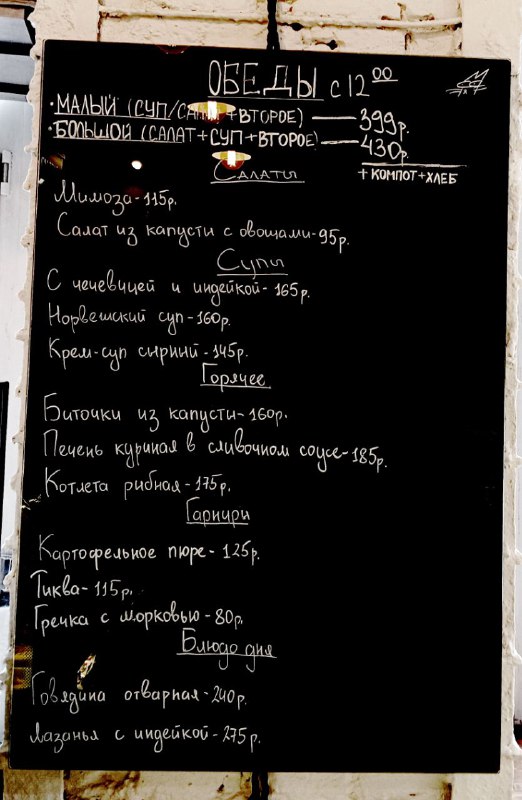 ОБЕДЫ с 12 00
• МАЛЫЙ (СУП/САЛАТ+ВТОРОЕ) — 399р.
• БОЛЬШОЙ (САЛАТ+СУП+ВТОРОЕ) — 430р.
+ КОМПОТ+ХЛЕБ
Салаты
Мимоза-115р.
Салат из капусти с овощами-95р.
Супы
С чечевицей и индейкой-165р.
Норвешский суп-160р.
Крем-суп сырний-145р.
Горячее
Биточки из капусти-160р.
Печень куриная в сливочном соусе-185р.
Котлета рибная-175р.
Гарнири
Картофельное пюре-125р.
Тиква-115р.
Гречка с морковью-80р.
Блюдо дня
Говядина отварная-240р.
Лазанья с индейкой-275р.